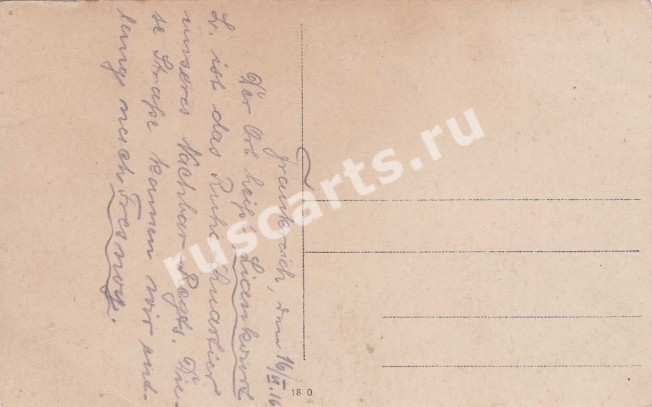 Frankreich, den 16/II.16
Der Ort heißt Liankourt
L. ist das Ruhe-Quartier
unseres Nachbar-Regts. Die-
se Straße kamen wir ent-
lang nach Fresnoy.
18 0
ruscarts.ru